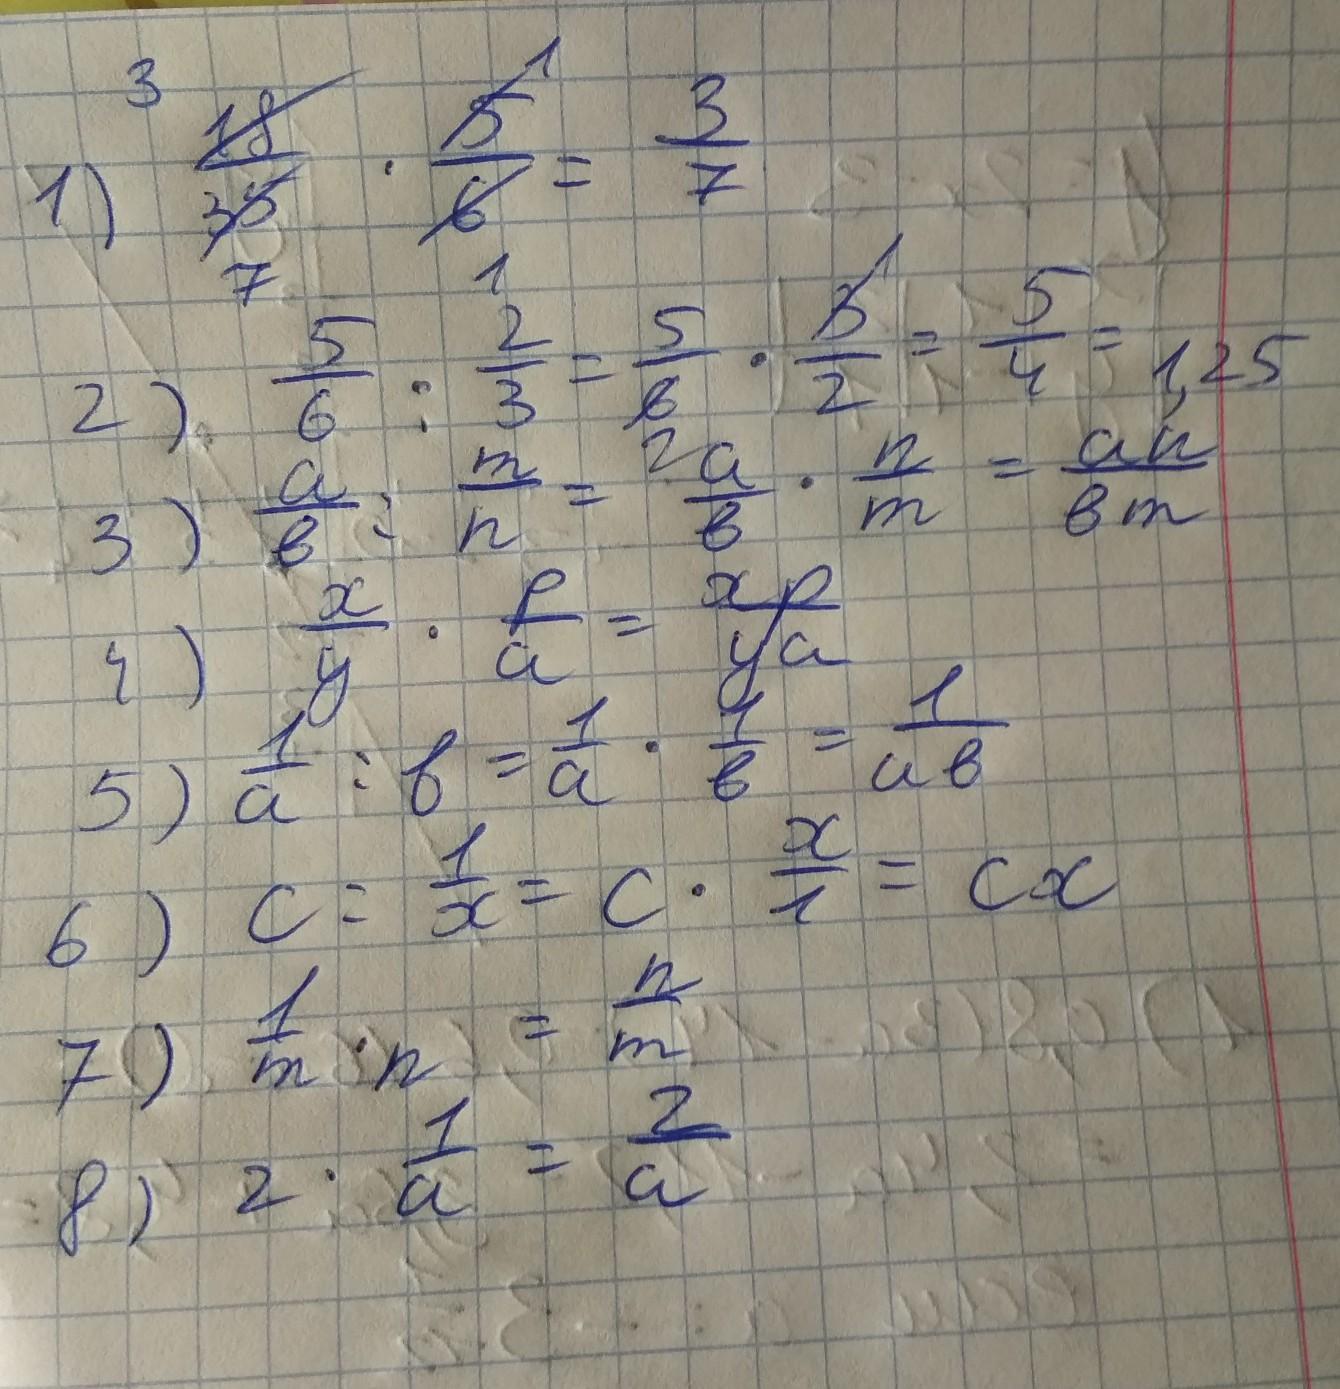 1) 18/35 · 5/6 = 3/7
2) 5/6 : 2/3 = 5/6 · 3/2 = 5/4 = 1,25
3) a/в : m/n = a/в · n/m = an/вm
4) x/y · p/a = xp/ya
5) 1/a : в = 1/a · 1/в = 1/aв
6) c : 1/x = c · x/1 = cx
7) 1/m · n = n/m
8) 2 · 1/a = 2/a